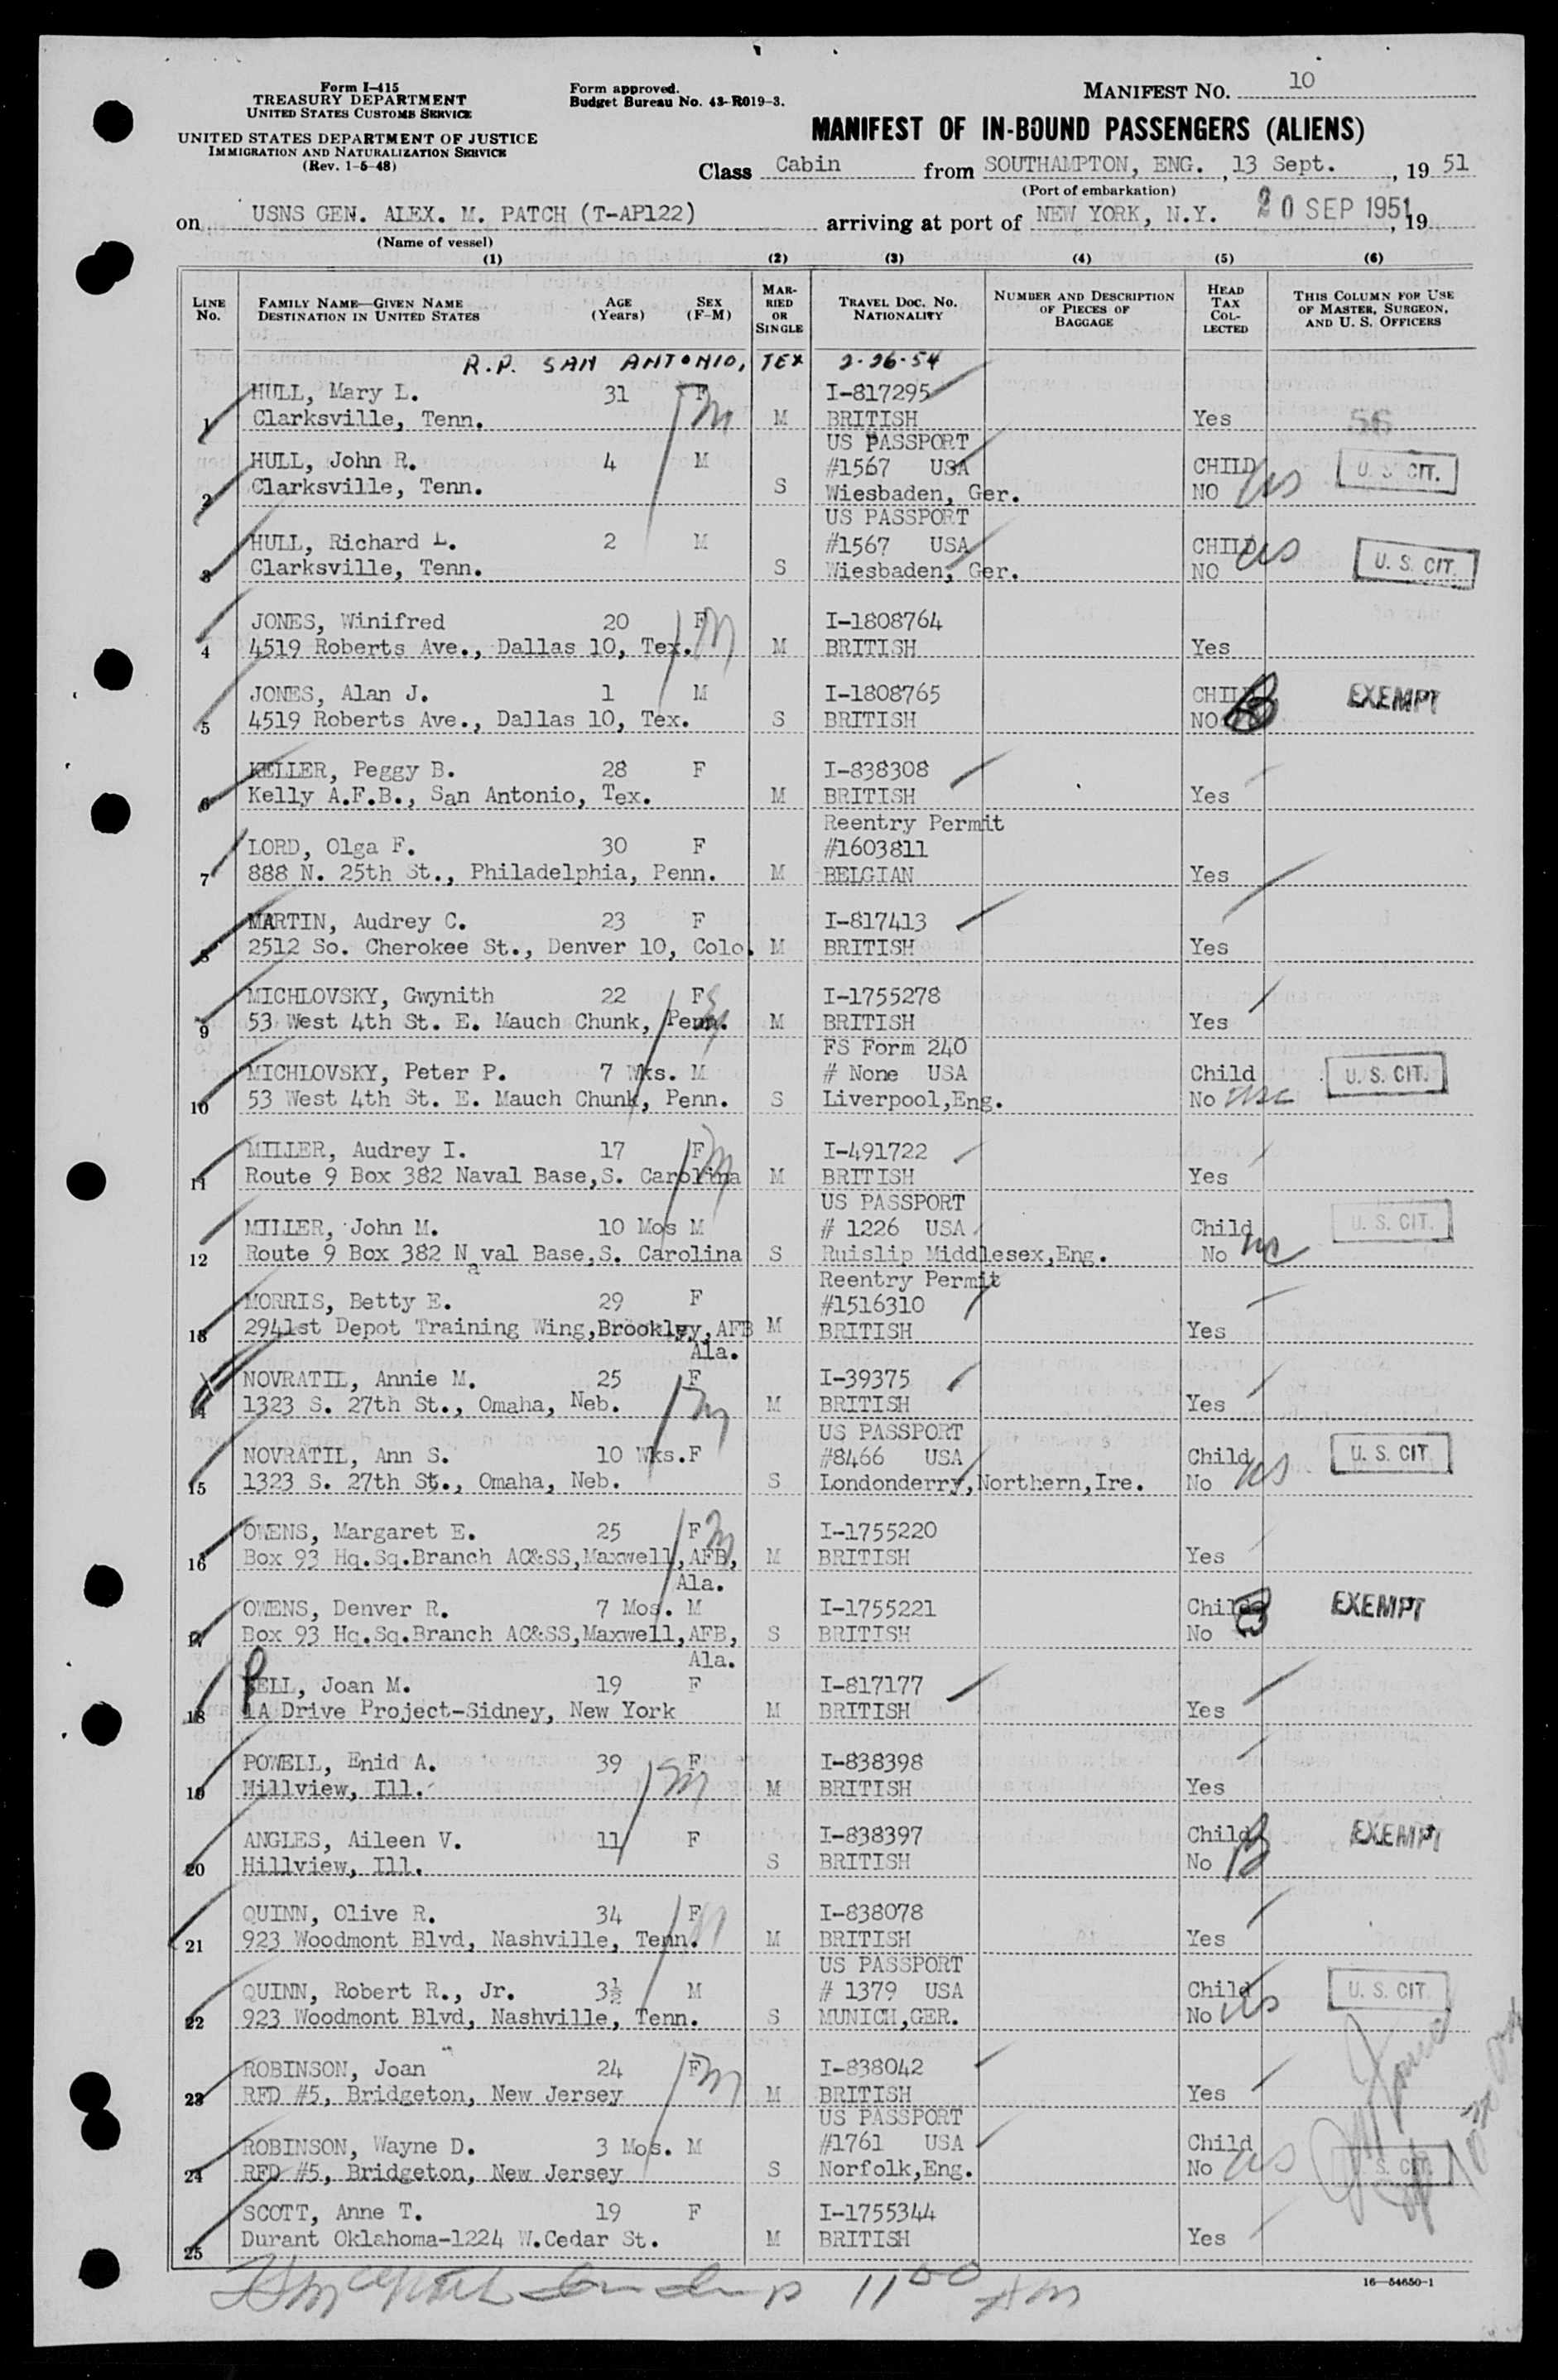 Form I-415
TREASURY DEPARTMENT
UNITED STATES CUSTOMS SERVICE
UNITED STATES DEPARTMENT OF JUSTICE
IMMIGRATION AND NATURALIZATION SERVICE
(Rev. 1-5-48)
Form approved.
Budget Bureau No. 43-R019-3.
MANIFEST NO. 10
MANIFEST OF IN-BOUND PASSENGERS (ALIENS)
Class Cabin from SOUTHAMPTON, ENG., 13 Sept., 19 51
(Port of embarkation)
on USNS GEN. ALEX. M. PATCH (T-AP122) arriving at port of NEW YORK, N.Y. 20 SEP 1951, 19
(Name of vessel)
(1) (2) (3) (4) (5) (6)
LINE No. FAMILY NAME—GIVEN NAME DESTINATION IN UNITED STATES AGE (Years) SEX (F-M) MARRIED OR SINGLE TRAVEL DOC. NO. NATIONALITY NUMBER AND DESCRIPTION OF PIECES OF BAGGAGE HEAD TAX COLLECTED THIS COLUMN FOR USE OF MASTER, SURGEON, AND U. S. OFFICERS
R.P. SAN ANTONIO, TEX 2-26-54
HULL, Mary L. 31 F I-817295
1 Clarksville, Tenn. M BRITISH Yes 56
US PASSPORT
HULL, John R. 4 M #1567 USA CHILD U. S. CIT.
2 Clarksville, Tenn. S Wiesbaden, Ger. NO US
US PASSPORT
HULL, Richard L. 2 M #1567 USA CHILD US
3 Clarksville, Tenn. S Wiesbaden, Ger. NO U. S. CIT.
JONES, Winifred 20 F I-1808764
4 4519 Roberts Ave., Dallas 10, Tex. M BRITISH Yes
JONES, Alan J. 1 M I-1808765 CHILD EXEMPT
5 4519 Roberts Ave., Dallas 10, Tex. S BRITISH NO B
KELLER, Peggy B. 28 F I-838308
6 Kelly A.F.B., San Antonio, Tex. M BRITISH Yes
Reentry Permit
LORD, Olga F. 30 F #1603811
7 888 N. 25th St., Philadelphia, Penn. M BELGIAN Yes
MARTIN, Audrey C. 23 F I-817413
8 2512 So. Cherokee St., Denver 10, Colo. M BRITISH Yes
MICHLOVSKY, Gwynith 22 F I-1755278
9 53 West 4th St. E. Mauch Chunk, Penn. M BRITISH Yes
FS Form 240
MICHLOVSKY, Peter P. 7 Wks. M # None USA Child U. S. CIT.
10 53 West 4th St. E. Mauch Chunk, Penn. S Liverpool,Eng. No
MILLER, Audrey I. 17 F I-491722
11 Route 9 Box 382 Naval Base,S. Carolina M BRITISH Yes
US PASSPORT
MILLER, John M. 10 Mos M # 1226 USA Child U. S. CIT.
12 Route 9 Box 382 Naval Base,S. Carolina S Ruislip Middlesex,Eng. No
Reentry Permit
MORRIS, Betty E. 29 F #1516310
13 2941st Depot Training Wing,Brookley,AFB M BRITISH Yes
Ala.
NOVRATIL, Annie M. 25 F I-39375
14 1323 S. 27th St., Omaha, Neb. M BRITISH Yes
US PASSPORT
NOVRATIL, Ann S. 10 Wks. F #8466 USA Child U. S. CIT.
15 1323 S. 27th St., Omaha, Neb. S Londonderry,Northern,Ire. No US
OWENS, Margaret E. 25 F I-1755220
16 Box 93 Hq.Sq.Branch AC&SS,Maxwell,AFB, M BRITISH Yes
Ala.
OWENS, Denver R. 7 Mos. M I-1755221 Child EXEMPT
17 Box 93 Hq.Sq.Branch AC&SS,Maxwell,AFB, S BRITISH No B
Ala.
PELL, Joan M. 19 F I-817177
18 1A Drive Project-Sidney, New York M BRITISH Yes
POWELL, Enid A. 39 F I-838398
19 Hillview, Ill. M BRITISH Yes
ANGLES, Aileen V. 11 F I-838397 Child EXEMPT
20 Hillview, Ill. S BRITISH No B
QUINN, Olive R. 34 F I-838078
21 923 Woodmont Blvd, Nashville, Tenn. M BRITISH Yes
US PASSPORT
QUINN, Robert R., Jr. 3½ M # 1379 USA Child U. S. CIT.
22 923 Woodmont Blvd, Nashville, Tenn. S MUNICH,GER. No US
ROBINSON, Joan 24 F I-838042
23 RFD #5, Bridgeton, New Jersey M BRITISH Yes
US PASSPORT
ROBINSON, Wayne D. 3 Mos. M #1761 USA Child
24 RFD #5, Bridgeton, New Jersey S Norfolk,Eng. No US U. S. CIT.
SCOTT, Anne T. 19 F I-1755344
25 Durant Oklahoma-1224 W.Cedar St. M BRITISH Yes
11 00 AM
16—54650-1